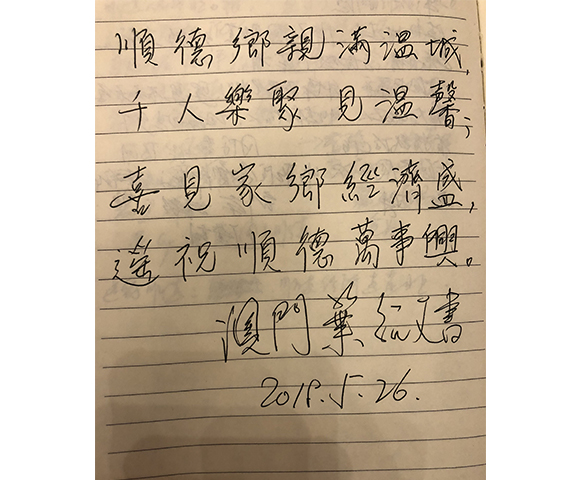 順德鄉親滿溫城,
千人樂聚見溫馨;
喜見家鄉經濟盛,
遙祝順德萬事興。
澳門葉紅文書
2018.5.26.